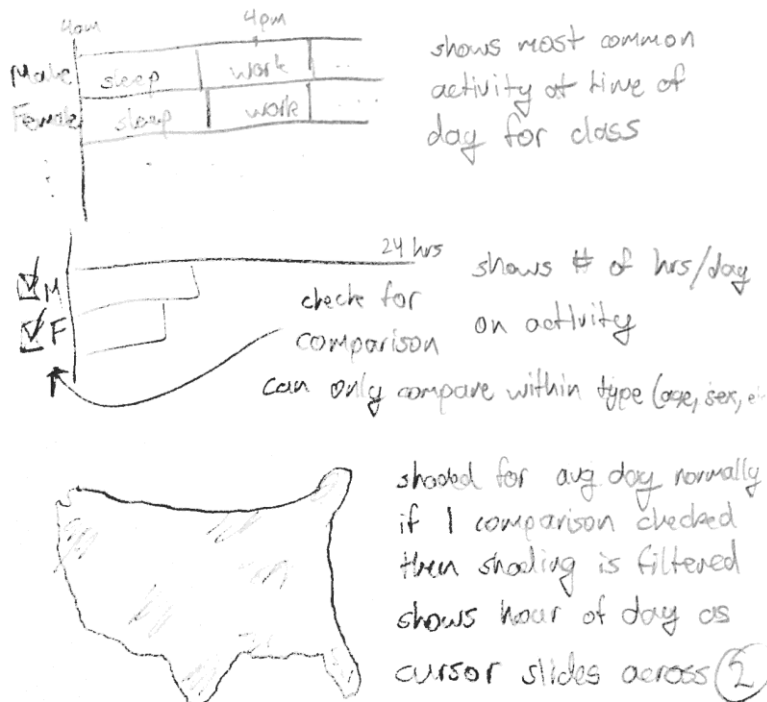 4am 4pm
Male sleep work ..
Female sleep work ...
shows most common
activity at time of
day for class
24 hrs
M
F
check for
comparison
shows # of hrs/day
on activity
can only compare within type (age, sex, e
shaded for avg day normally
if 1 comparison checked
then shading is filtered
shows hour of day as
cursor slides across 2